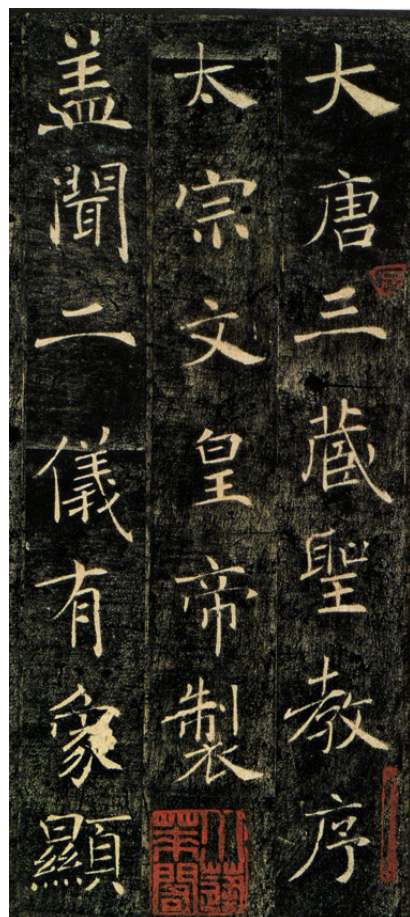 大唐三蔵聖教序
太宗文皇帝製
盖聞二儀有象顯